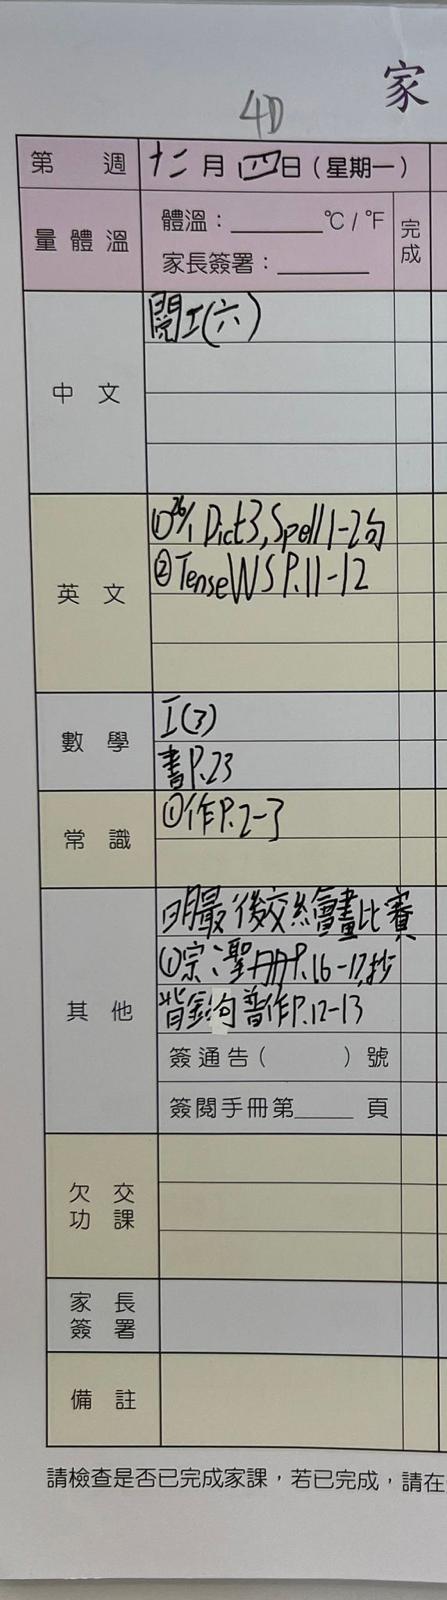 家
4D
第 週 十二月四日(星期一)
量體溫 體溫:________℃/℉ 完成
家長簽署:________
中文 閱工(六)
英文 ①26/1 Dict3,Spell1-2句
②TenseWS P.11-12
數學 工(3)
書P.23
常識 ①作P.2-3
其他 明最後交繪畫比賽
①宗:聖冊P.16-17,抄
背金句 普作P.12-13
簽通告( )號
簽閱手冊第____頁
欠交功課
家長簽署
備註
請檢查是否已完成家課,若已完成,請在